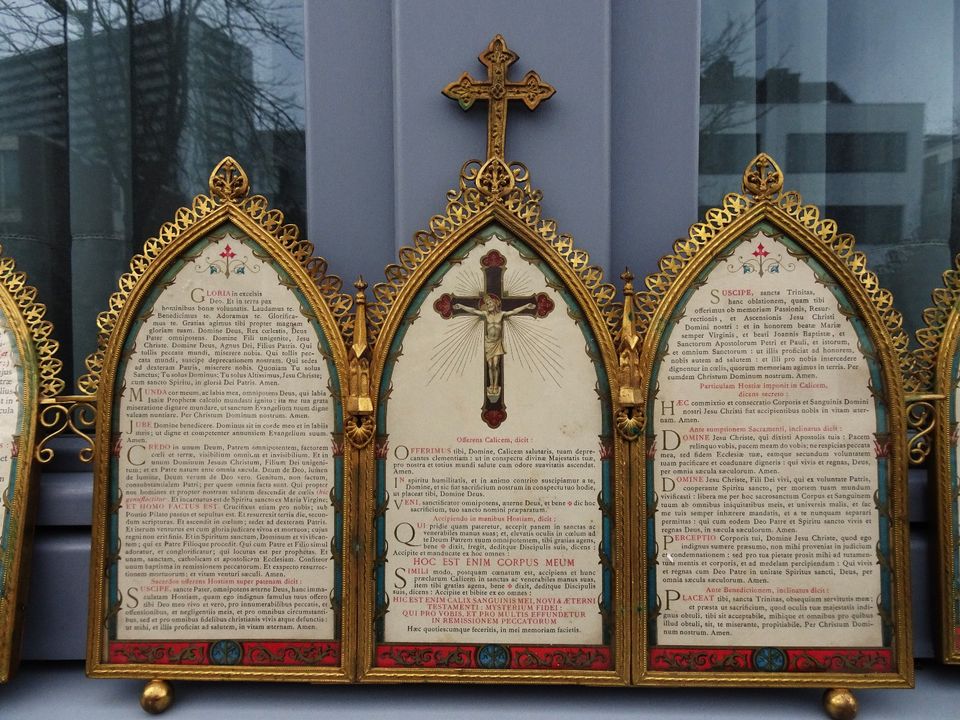 GLORIA in excelsis
Deo. Et in terra pax
hominibus bonæ voluntatis. Laudamus te.
Benedicimus te. Adoramus te. Glorifica-
mus te. Gratias agimus tibi propter magnam
gloriam tuam. Domine Deus, Rex cœlestis, Deus
Pater omnipotens. Domine Fili unigenite, Jesu
Christe. Domine Deus, Agnus Dei, Filius Patris. Qui
tollis peccata mundi, miserere nobis. Qui tollis pec-
cata mundi, suscipe deprecationem nostram. Qui sedes
ad dexteram Patris, miserere nobis. Quoniam Tu solus
Sanctus. Tu solus Dominus. Tu solus Altissimus, Jesu Christe,
cum sancto Spiritu, in gloriâ Dei Patris. Amen.
MUNDA cor meum, ac labia mea, omnipotens Deus, qui labia
Isaiæ Prophetæ calculo mundasti ignito: ita me tua grata
miseratione dignare mundare, ut sanctum Evangelium tuum digne
valeam nuntiare. Per Christum Dominum nostrum. Amen.
JUBE Domne benedicere. Dominus sit in corde meo et in labiis
meis: ut digne et competenter annuntiem Evangelium suum.
Amen.
CREDO in unum Deum, Patrem omnipotentem, factorem
cœli et terræ, visibilium omnium et invisibilium. Et in
unum Dominum Jesum Christum, Filium Dei unigeni-
tum; et ex Patre natum ante omnia sæcula. Deum de Deo, lumen
de lumine, Deum verum de Deo vero. Genitum, non factum,
consubstantialem Patri; per quem omnia facta sunt. Qui propter
nos homines et propter nostram salutem descendit de cœlis (hic
genuflectitur). Et incarnatus est de Spiritu sancto ex Maria Virgine,
ET HOMO FACTUS EST. Crucifixus etiam pro nobis; sub
Pontio Pilato passus et sepultus est. Et resurrexit tertia die, secun-
dum scripturas. Et ascendit in cœlum; sedet ad dexteram Patris.
Et iterum venturus est cum gloria judicare vivos et mortuos; cujus
regni non erit finis. Et in Spiritum sanctum, Dominum et vivifican-
tem; qui ex Patre Filioque procedit. Qui cum Patre et Filio simul
adoratur, et conglorificatur; qui locutus est per prophetas. Et
unam, sanctam, catholicam et apostolicam Ecclesiam. Confiteor
unum baptisma in remissionem peccatorum. Et expecto resurrec-
tionem mortuorum; et vitam venturi sæculi. Amen.
Sacerdos offerens Hostiam super patenam dicit:
SUSCIPE, sancte Pater, omnipotens æterne Deus, hanc im-
maculatam Hostiam, quam ego indignus famulus tuus offero
tibi Deo meo vivo et vero, pro innumerabilibus peccatis, et
offensionibus, et negligentiis meis, et pro omnibus circumstanti-
bus, sed et pro omnibus fidelibus christianis vivis atque defunctis:
ut mihi, et illis proficiat ad salutem, in vitam æternam. Amen.
Offerens Calicem, dicit:
OFFERIMUS tibi, Domine, Calicem salutaris, tuam depre-
cantes clementiam: ut in conspectu divinæ Majestatis tuæ,
pro nostra et totius mundi salute cum odore suavitatis ascendat.
Amen.
IN spiritu humilitatis, et in animo contrito suscipiamur a te,
Domine, et sic fiat sacrificium nostrum in conspectu tuo hodie,
ut placeat tibi, Domine Deus.
VENI, sanctificator omnipotens, æterne Deus, et bene ✠ dic hoc
sacrificium, tuo sancto nomini præparatum.
Accipiendo in manibus Hostiam, dicit:
QUI pridie quam pateretur, accepit panem in sanctas ac
venerabiles manus suas, et, elevatis oculis in cœlum ad
te Deum Patrem suum omnipotentem, tibi gratias agens,
bene ✠ dixit, fregit, deditque Discipulis suis, dicens:
Accipite et manducate ex hoc omnes:
HOC EST ENIM CORPUS MEUM
SIMILI modo, postquam cœnatum est, accipiens et hunc
præclarum Calicem in sanctas ac venerabiles manus suas,
item tibi gratias agens, bene ✠ dixit, deditque Discipulis
suis, dicens: Accipite, et bibite ex eo omnes:
HIC EST ENIM CALIX SANGUINIS MEI, NOVI & ÆTERNI
TESTAMENTI: MYSTERIUM FIDEI
QUI PRO VOBIS, ET PRO MULTIS EFFUNDETUR
IN REMISSIONEM PECCATORUM
Hæc quotiescumque feceritis, in mei memoriam facietis.
SUSCIPE, sancta Trinitas,
hanc oblationem, quam tibi
offerimus ob memoriam Passionis, Resur-
rectionis, et Ascensionis Jesu Christi
Domini nostri: et in honorem beatæ Mariæ
semper Virginis, et beati Joannis Baptistæ, et
Sanctorum Apostolorum Petri et Pauli, et istorum,
et omnium Sanctorum: ut illis proficiat ad honorem,
nobis autem ad salutem: et illi pro nobis interce-
dere dignentur in cœlis, quorum memoriam agimus in terris. Per
eumdem Christum Dominum nostrum. Amen.
Particulam Hostiæ imponit in Calicem,
dicens secreto:
HÆC commixtio et consecratio Corporis et Sanguinis Domini
nostri Jesu Christi fiat accipientibus nobis in vitam æter-
nam. Amen.
Ante sumptionem Sacramenti, inclinatus dicit:
DOMINE Jesu Christe, qui dixisti Apostolis tuis: Pacem
relinquo vobis, pacem meam do vobis: ne respicias peccata
mea, sed fidem Ecclesiæ tuæ, eamque secundum voluntatem
tuam pacificare et coadunare digneris: qui vivis et regnas, Deus,
per omnia sæcula sæculorum. Amen.
DOMINE Jesu Christe, Fili Dei vivi, qui ex voluntate Patris,
cooperante Spiritu sancto, per mortem tuam mundum
vivificasti: libera me per hoc sacrosanctum Corpus et Sanguinem
tuum ab omnibus iniquitatibus meis, et universis malis, et fac
me tuis semper inhærere mandatis, et a te nunquam separari
permittas: qui cum eodem Deo Patre et Spiritu sancto vivis
et regnas Deus, in sæcula sæculorum. Amen.
PERCEPTIO Corporis tui, Domine Jesu Christe, quod ego
indignus sumere præsumo, non mihi proveniat in judicium
et condemnationem: sed pro tua pietate prosit mihi ad tutamen-
tum mentis et corporis, et ad medelam percipiendam: Qui vivis
et regnas cum Deo Patre in unitate Spiritus sancti, Deus, per
omnia sæcula sæculorum. Amen.
Ante Benedictionem, inclinatus dicit:
PLACEAT tibi, sancta Trinitas, obsequium servitutis meæ;
et præsta ut sacrificium, quod oculis tuæ majestatis indi-
gnus obtuli, tibi sit acceptabile, mihique et omnibus pro quibus
illud obtuli, sit, te miserante, propitiabile. Per Christum Domi-
num nostrum. Amen.